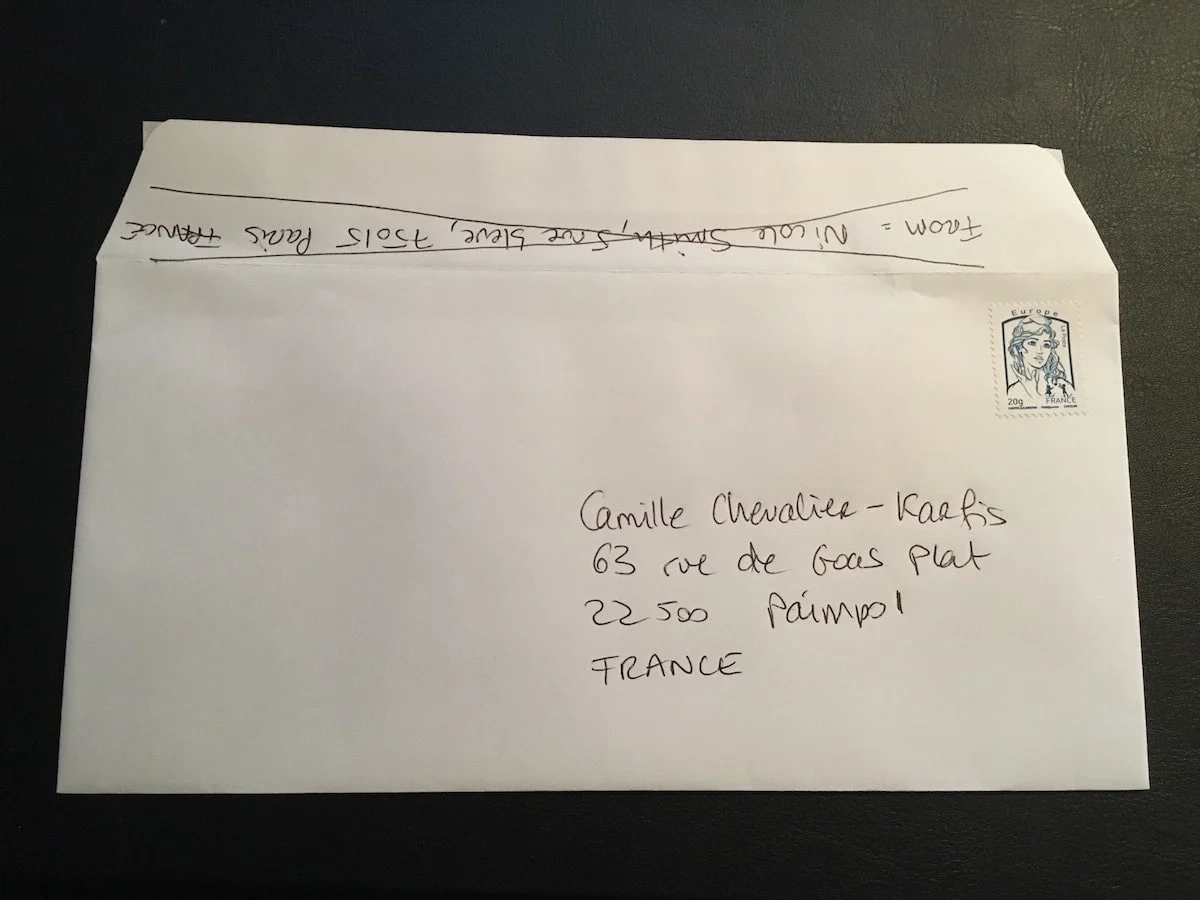 From = Nicole Smith, 5 rue bleue, 75015 Paris FRANCE
Europe
La Poste
20g FRANCE
Camille Chevalier-Karfis
63 rue de Goas Plat
22500 Païmpol
FRANCE